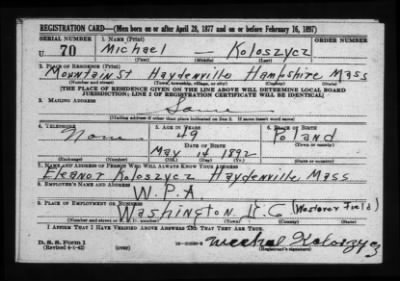 REGISTRATION CARD—(Men born on or after April 28, 1877 and on or before February 16, 1897)
SERIAL NUMBER 1. NAME (Print) ORDER NUMBER
U 70 Michael — Koloszycz
(First) (Middle) (Last)
2. PLACE OF RESIDENCE (Print)
Mountain St Haydenville Hampshire Mass
(Number and street) (Town, township, village, or city) (County) (State)
[THE PLACE OF RESIDENCE GIVEN ON THE LINE ABOVE WILL DETERMINE LOCAL BOARD
JURISDICTION; LINE 2 OF REGISTRATION CERTIFICATE WILL BE IDENTICAL]
3. MAILING ADDRESS
Same
[Mailing address if other than place indicated on line 2. If same insert word same]
4. TELEPHONE 5. AGE IN YEARS 6. PLACE OF BIRTH
None 49 Poland
DATE OF BIRTH (Town or county)
May 14 1892
(Exchange) (Number) (Mo.) (Day) (Yr.) (State or country)
7. NAME AND ADDRESS OF PERSON WHO WILL ALWAYS KNOW YOUR ADDRESS
Eleanor Koloszycz Haydenville, Mass
8. EMPLOYER'S NAME AND ADDRESS
W.P.A.
9. PLACE OF EMPLOYMENT OR BUSINESS
Washington D.C (Westover Field)
(Number and street or R. F. D. number) (Town) (County) (State)
I AFFIRM THAT I HAVE VERIFIED ABOVE ANSWERS AND THAT THEY ARE TRUE.
D. S. S. Form 1
(Revised 4-1-42) (over) (Registrant's signature)
Koloszycz